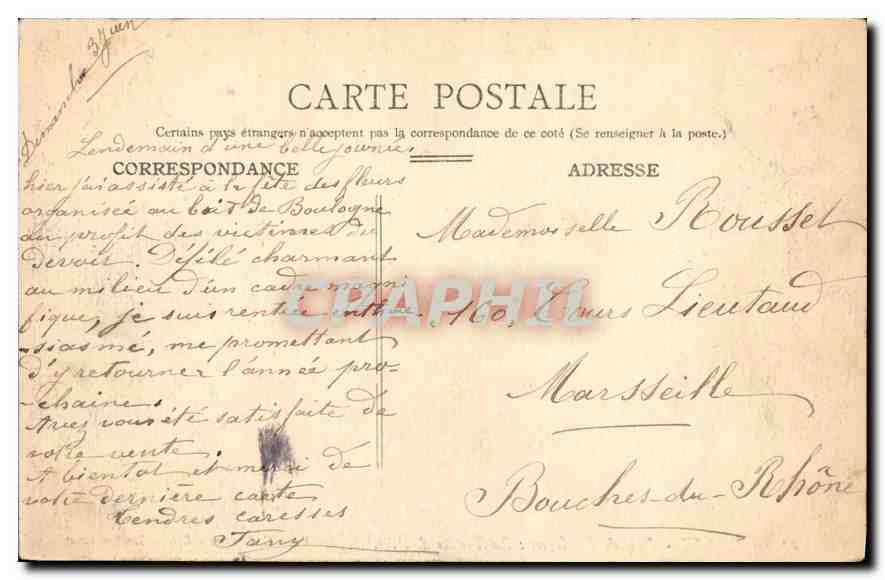 Dimanche 3 Juin
CARTE POSTALE
Certains pays étrangers n'acceptent pas la correspondance de ce coté (Se renseigner à la poste.)
Lendemain d'une belle journée,
CORRESPONDANCE
hier j'ai assisté à la fête des fleurs
organisée au bois de Boulogne
au profit des victimes du
devoir. Défilé charmant
au milieu d'un cadre magni
fique, je suis rentrée enthou
-siasmé, me promettant
d'y retourner l'année pro-
-chaine.
Avez vous été satisfaite de
votre vente.
A bientot et merci de
votre dernière carte
Tendres caresses
Tany
ADRESSE
Mademoiselle Rousset
160, Cours Lieutaud
Marsseille
Bouches-du-Rhône
CPAPHIL